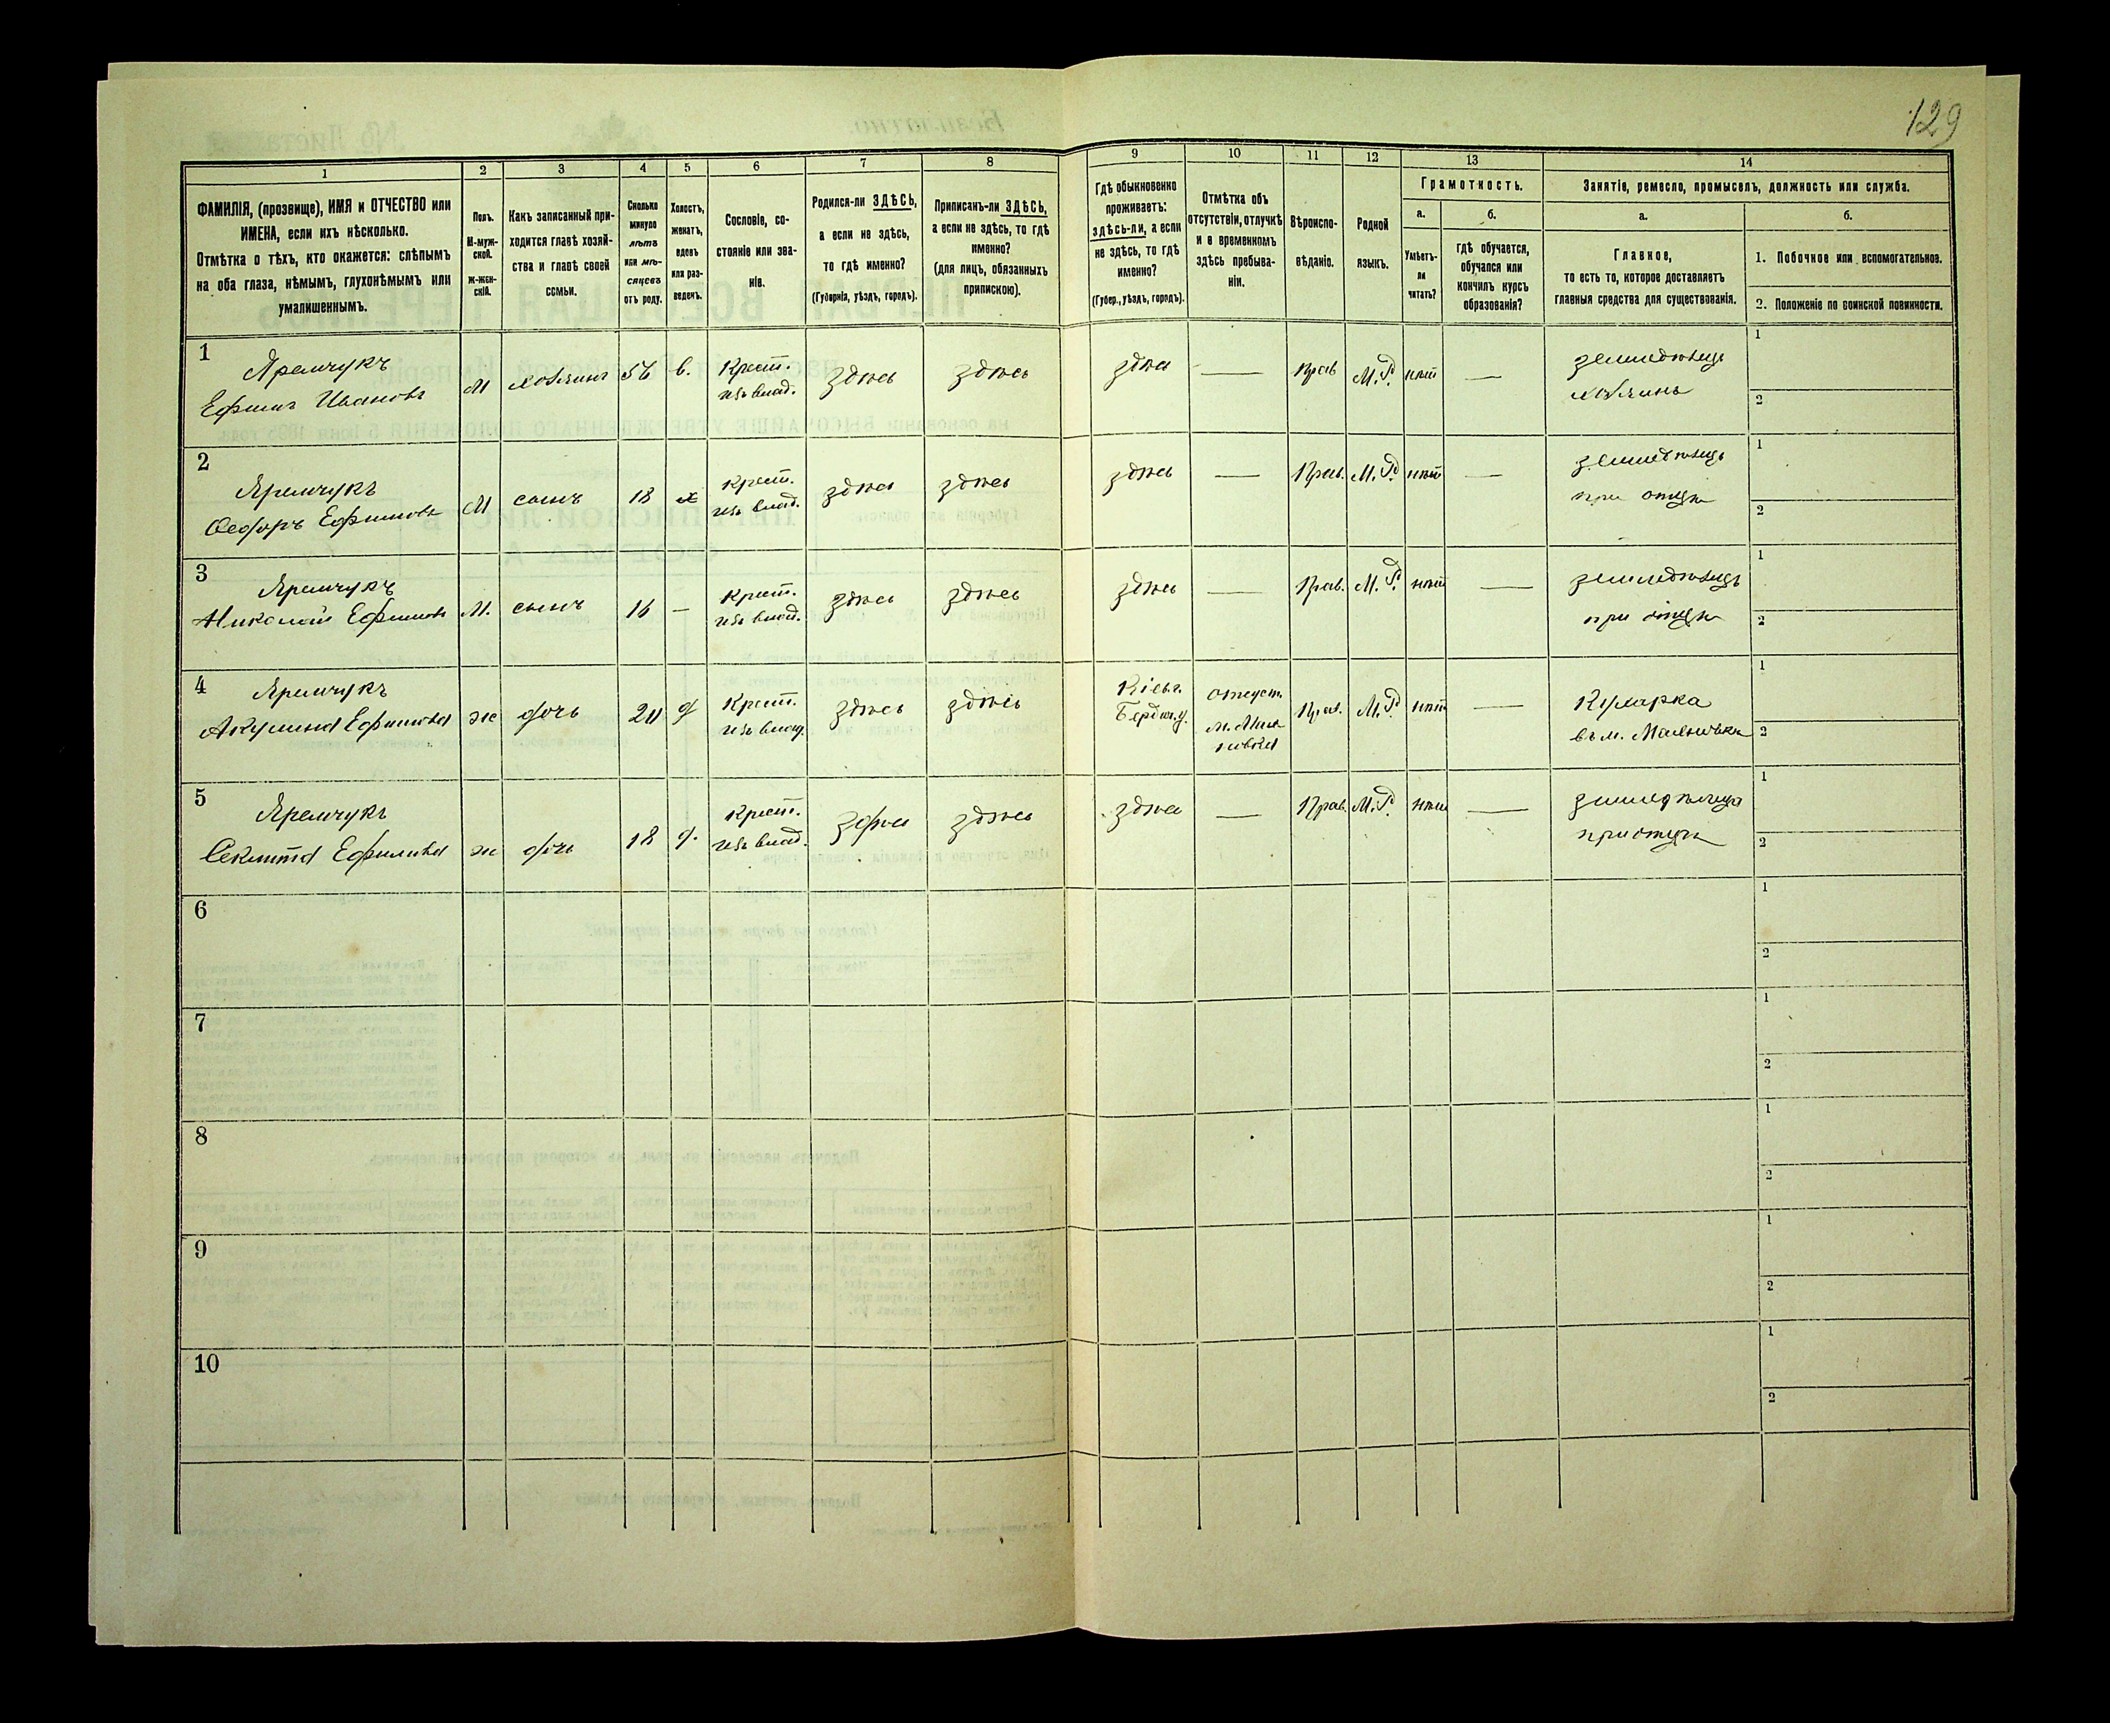 129
1
2
3
4
5
6
7
8
9
10
11
12
13
14
ФАМИЛІЯ, (прозвище), ИМЯ и ОТЧЕСТВО или
ИМЕНА, если ихъ нѣсколько.
Отмѣтка о тѣхъ, кто окажется: слѣпымъ
на оба глаза, нѣмымъ, глухонѣмымъ или
умалишеннымъ.
Полъ.
М-муж-
ской.
Ж-жен-
скій.
Какъ записанный при-
ходится главѣ хозяй-
ства и главѣ своей
семьи.
Сколько
минуло
лѣтъ
или мѣ-
сяцевъ
отъ роду.
Холостъ,
женатъ,
вдовъ
или раз-
веденъ.
Сословіе, со-
стояніе или зва-
ніе.
Родился-ли ЗДѢСЬ,
а если не здѣсь,
то гдѣ именно?
(Губернія, уѣздъ, городъ).
Приписанъ-ли ЗДѢСЬ,
а если не здѣсь, то гдѣ
именно?
(для лицъ, обязанныхъ
припискою).
Гдѣ обыкновенно
проживаетъ:
здѣсь-ли, а если
не здѣсь, то гдѣ
именно?
(Губер., уѣздъ, городъ).
Отмѣтка объ
отсутствіи, отлучкѣ
и о временномъ
здѣсь пребыва-
ніи.
Вѣроиспо-
вѣданіе.
Родной
языкъ.
Грамотность.
а.
б.
Умѣетъ-
ли
читать?
гдѣ обучается,
обучался или
кончилъ курсъ
образованія?
Занятіе, ремесло, промыселъ, должность или служба.
а.
б.
Главное,
то есть то, которое доставляетъ
главныя средства для существованія.
1. Побочное или вспомогательное.
2. Положеніе по воинской повинности.
1
Яремчукъ
Ефимъ Ивановъ
М
хозяинъ
56
в.
Крест.
изъ влад.
здѣсь
здѣсь
здѣсь
—
Прав
М.Р.
нѣтъ
—
земледѣлецъ
хозяинъ
1
2
2
Яремчукъ
Ѳедоръ Ефимовъ
М
сынъ
18
х
Крест.
изъ влад.
здѣсь
здѣсь
здѣсь
—
Прав.
М.Р.
нѣтъ
—
земледѣлецъ
при отцѣ
1
2
3
Яремчукъ
Николай Ефимовъ
М.
сынъ
16
—
Крест.
изъ влад.
здѣсь
здѣсь
здѣсь
—
Прав.
М.Р.
нѣтъ
—
земледѣлецъ
при отцѣ
1
2
4
Яремчукъ
Акулина Ефимова
ж
дочь
20
д
Крест.
изъ влад.
здѣсь
здѣсь
Кіев.г.
Бердич.у.
отсутст.
Прав.
М.Р.
нѣтъ
—
Кухарка
въ м.
1
2
5
Яремчукъ
Секлета Ефимова
ж
дочь
18
д.
Крест.
изъ влад.
здѣсь
здѣсь
здѣсь
—
Прав.
М.Р.
нѣтъ
—
земледѣлица
при отцѣ
1
2
6
1
2
7
1
2
8
1
2
9
1
2
10
1
2